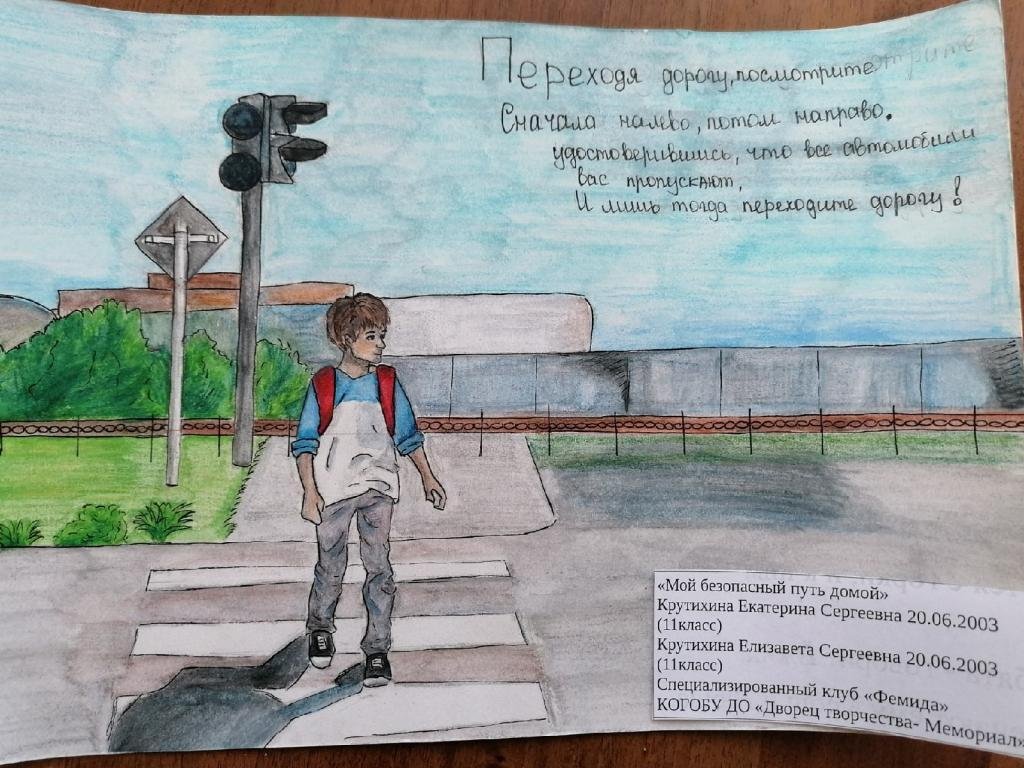 Переходя дорогу, посмотрите
Сначала налево, потом направо.
удостоверившись, что все автомобили
вас пропускают,
И лишь тогда переходите дорогу!
«Мой безопасный путь домой»
Крутихина Екатерина Сергеевна 20.06.2003
(11класс)
Крутихина Елизавета Сергеевна 20.06.2003
(11класс)
Специализированный клуб «Фемида»
КОГОБУ ДО «Дворец творчества- Мемориал»